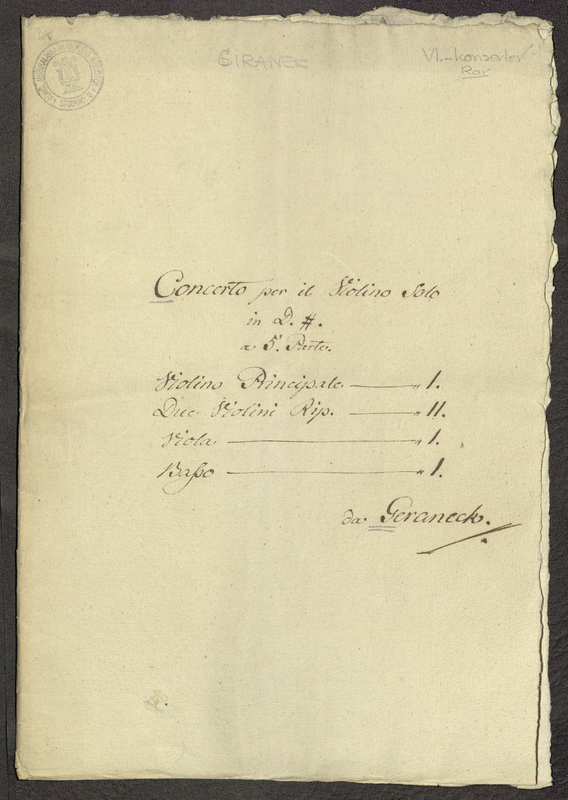 GIRANEK
Vl.-konserter
Rar
Concerto per il Violino Solo
in D. #.
a 5. Parte.
Violino Principale — „ 1.
Due Violini Rip. — „ 11.
Viola — „ 1.
Baſso — „ 1.
da Geraneck.